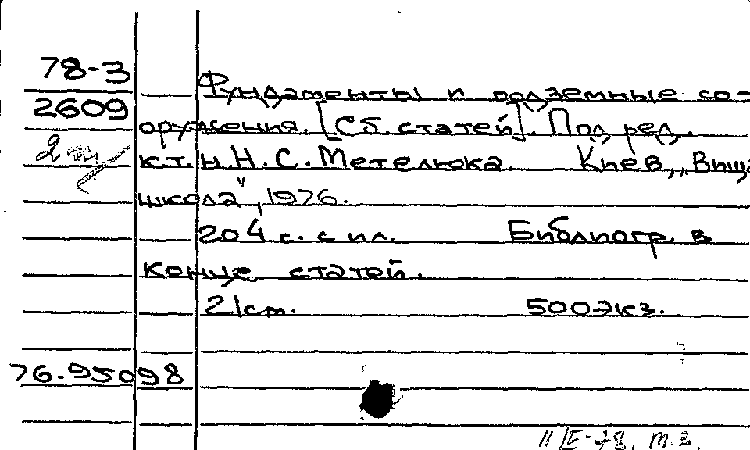 78-3
Фундаменты и подземные со-
2609
оружения. [Сб. статей]. Под ред.
2
к.т.н. Н. С. Метелюка. Киев, „Вища
школа", 1976.
204 с. с ил. Библиогр. в
конце статей.
21 см. 500 экз.
76.95098